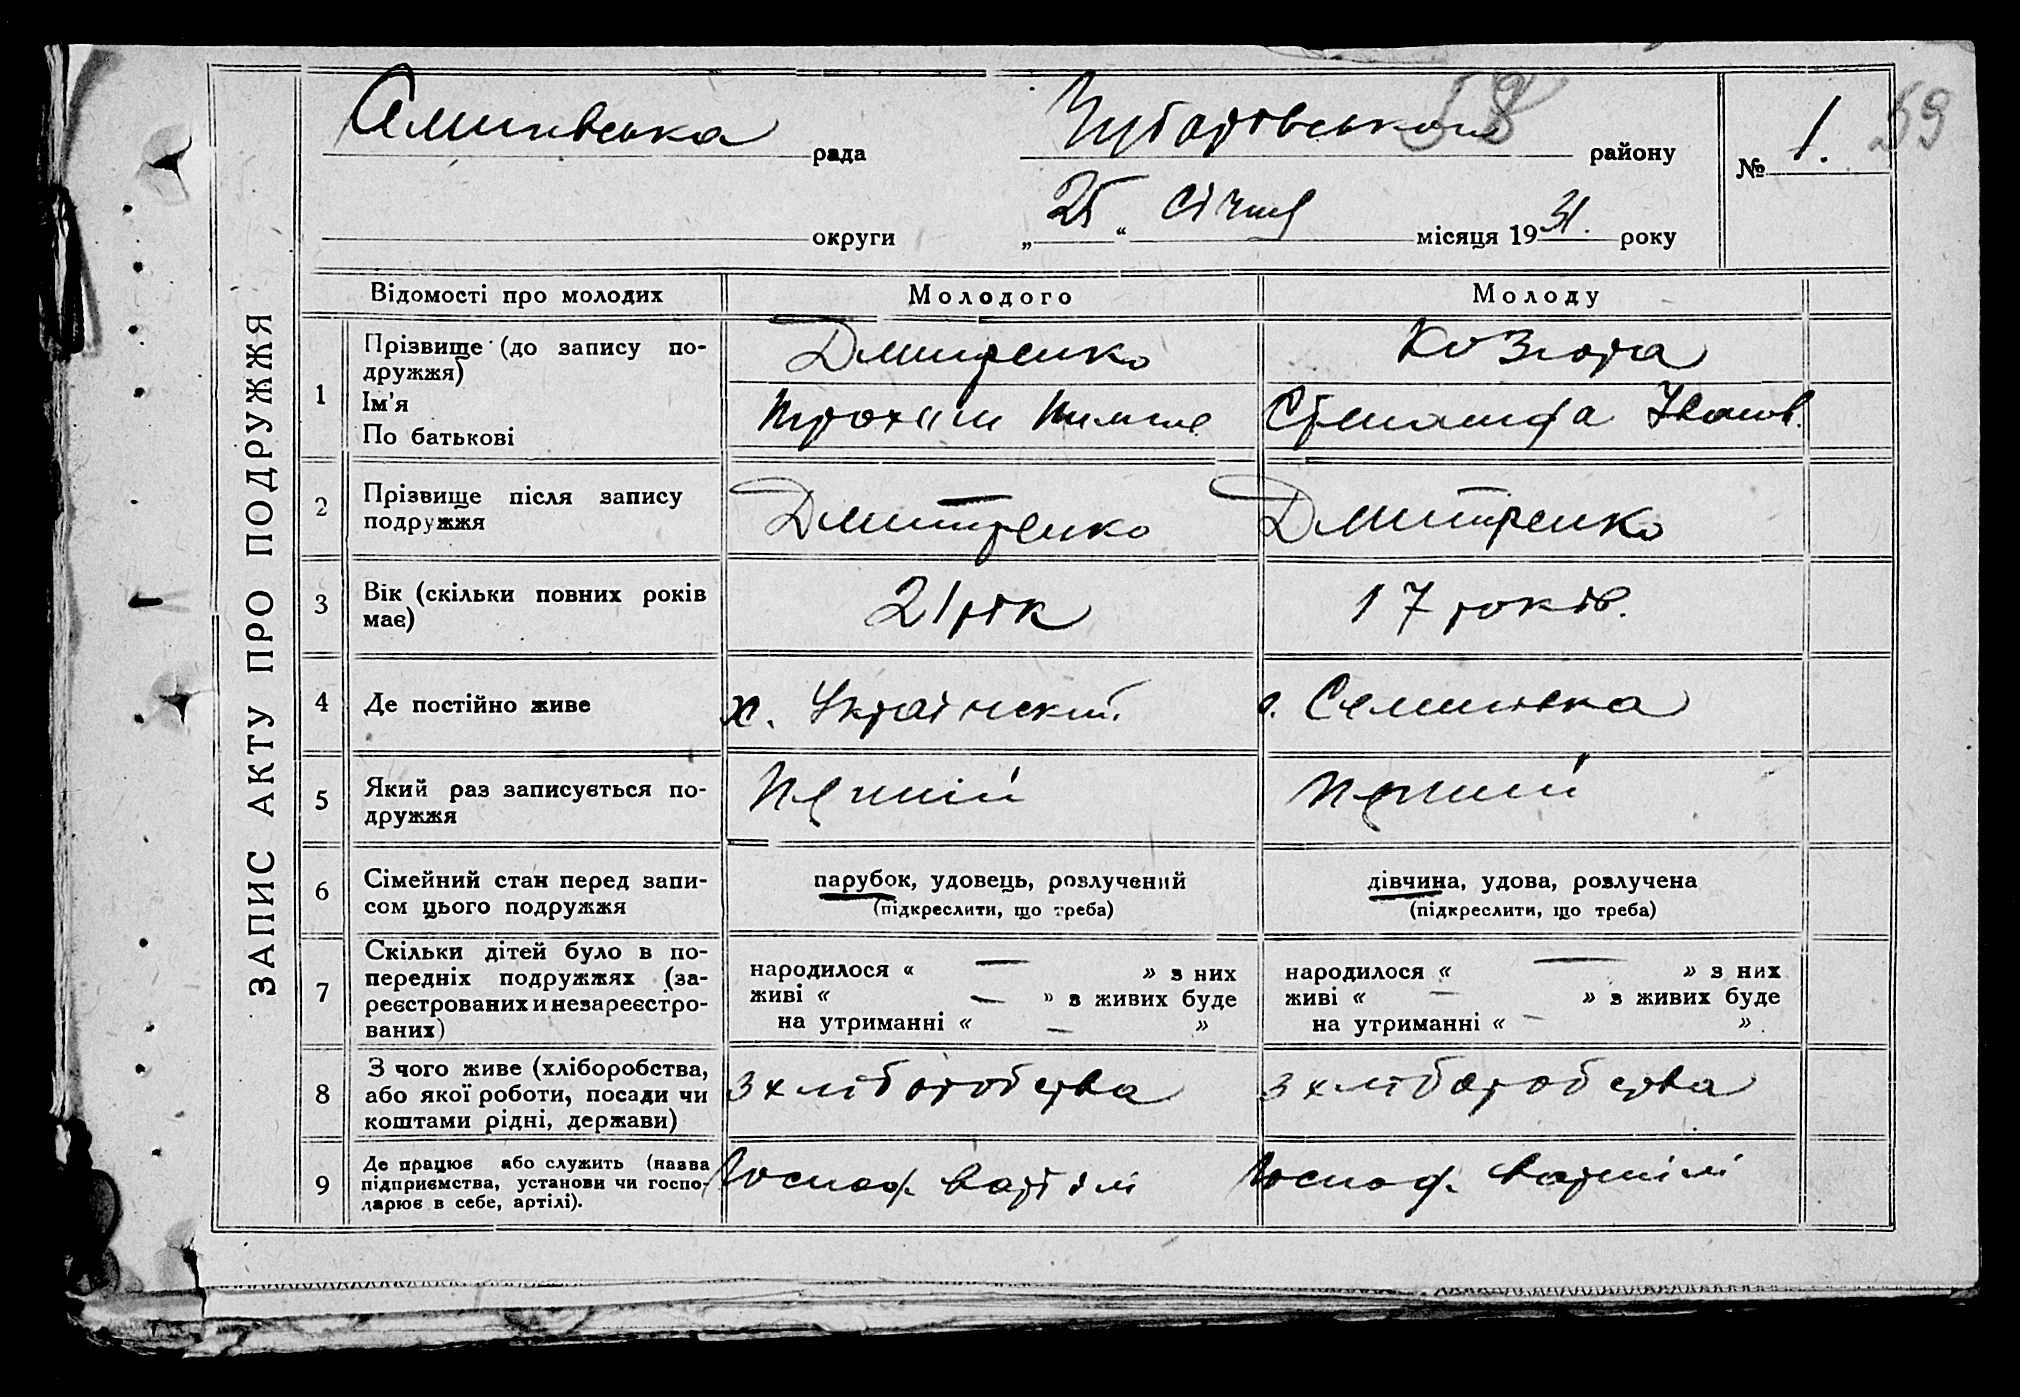 59
58
Семинівська рада Чубарівського району № 1.
округи „25“ Січня місяця 1931. року
ЗАПИС АКТУ ПРО ПОДРУЖЖЯ
Відомості про молодих Молодого Молоду
1 Прізвище (до запису по-
дружжя) Дмитренко Козюра
Ім'я
По батькові Степанида Іванов.
2 Прізвище після запису
подружжя Дмитренко Дмитренко
3 Вік (скільки повних років
має) 21 рік 17 років.
4 Де постійно живе х. Український. с. Семинівка
5 Який раз записується по-
дружжя Перший Перший
6 Сімейний стан перед запи-
сом цього подружжя парубок, удовець, розлучений дівчина, удова, розлучена
(підкреслити, що треба) (підкреслити, що треба)
7 Скільки дітей було в по-
передніх подружжях (за-
реєстрованих и незареєстро-
ваних)
народилося « — » з них народилося « — » з них
живі « — » з живих буде живі « — » з живих буде
на утриманні « — » на утриманні « — »
8 З чого живе (хліборобства,
або якої роботи, посади чи
коштами рідні, держави) з хліборобства з хліборобства
9 Де працює або служить (назва
підприємства, установи чи госпо-
дарює в себе, артілі). Господ. в артілі Господ. в артілі